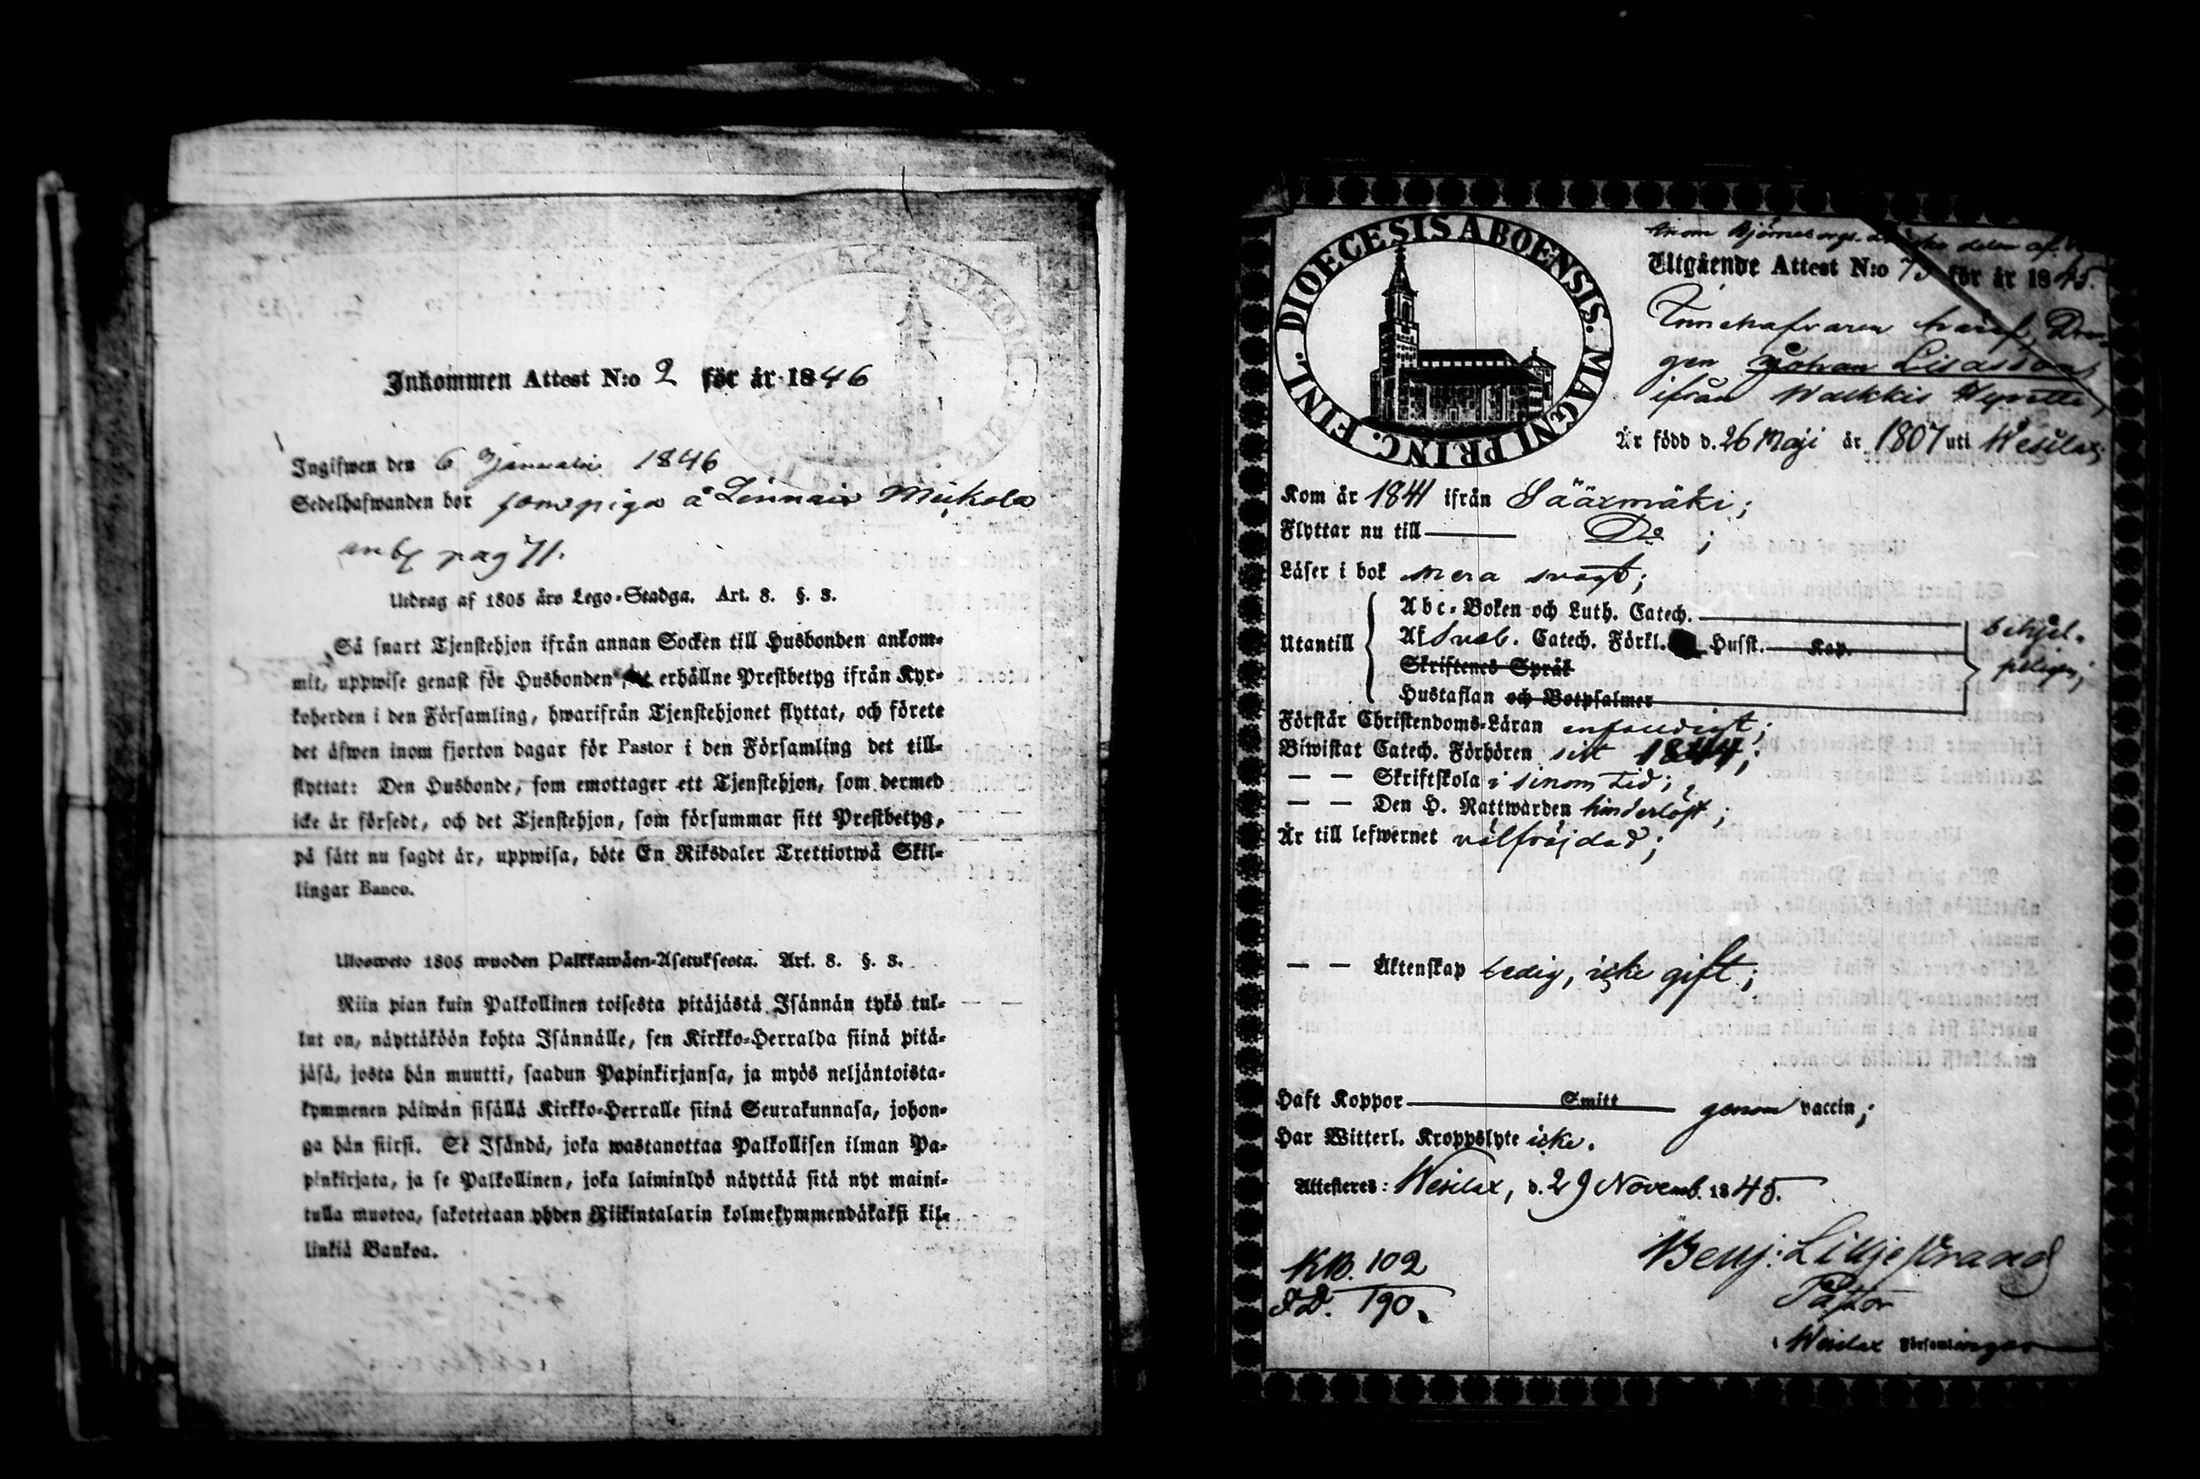 Inkommen Attest N:o 2 för år 1846
Ingifwen den 6 Januarii 1846
Sedelhafwanden bor som piga å Linnais Mickola
pag 71.
Utdrag af 1805 års Lego-Stadga. Art. 8. §. 3.
Så snart Tjenstehjon ifrån annan Socken till Husbonden ankom-
mit, uppwise genast för Husbonden erhållne Prestbetyg ifrån Kyr-
koherden i den Församling, hwarifrån Tjenstehjonet flyttat, och förete
det äfwen inom fjorton dagar för Pastor i den Församling det till-
flyttat: Den Husbonde, som emottager ett Tjenstehjon, som dermed
icke är försedt, och det Tjenstehjon, som försummar sitt Prestbetyg,
på sätt nu sagdt är, uppwisa, böte En Riksdaler Trettiotwå Skil-
lingar Banco.
Uloswето 1805 wuoden Palkkawäen-Asetuksesta. Art. 8. §. 3.
Niin pian kuin Palkollinen toisesta pitäjästä Isännän tykö tul-
lut on, näyttäköön kohta Isännälle, sen Kirkko-Herralda siinä pitä-
jäsä, josta hän muutti, saadun Papinkirjansa, ja myös neljäntoista-
kymmenen päiwän sisällä Kirkko-Herralle siinä Seurakunnasa, johon-
ga hän siirsi. Se Isändä, joka wastanottaa Palkollisen ilman Pa-
pinkirjata, ja se Palkollinen, joka laiminlyö näyttää sitä nyt maini-
tulla muotoa, sakotetaan yhden Riikintalarin kolmekymmendäkaksi kil-
linkiä Bankoa.
DIOECESIS ABOENSIS. MAGNI PRINC. FINL.
inom Björneborgs delen af
Utgående Attest N:o 75 för år 1845.
Innehafvaren häraf, Dren-
gen Johan Lisasson,
ifrån Walkkis Hyrette,
Är född d. 26 Maji år 1807 uti Wesilax;
Kom år 1841 ifrån Sääxmäki;
Flyttar nu till D:o ;
Läser i bok mera svagt;
Utantill
Abc-Boken och Luth. Catech.
Af Sveb. Catech. Förkl. Husst. Kap.
Skriftenes Språk
Hustaflan och Botpsalmer
behjel-
peligen;
Förstår Christendoms-Läran enfaldigt;
Biwistat Catech. Förhören sist 1844;
— — Skriftskola i sinom tid;
— — Den H. Nattwarden hinderlöst;
Är till lefwernet välfräjdad;
— — Äktenskap ledig, icke gift;
Haft Koppor Smitt genom vaccin;
Har Witterl. Kroppslyte icke.
Attesteres: Wesilax, d. 29 Novemb. 1845.
KB. 102
190.
Benj: Lilljestrand
Pastor
i Wesilax Församlingar